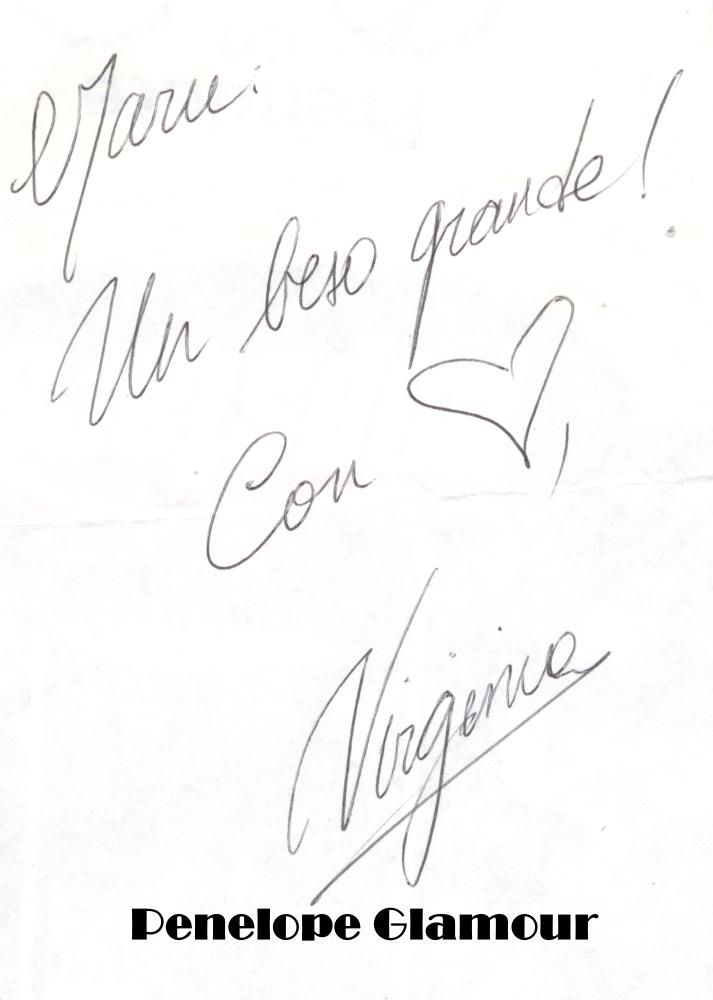 Maru:
Un beso grande!
Con ♡,
Virginia
Penelope Glamour